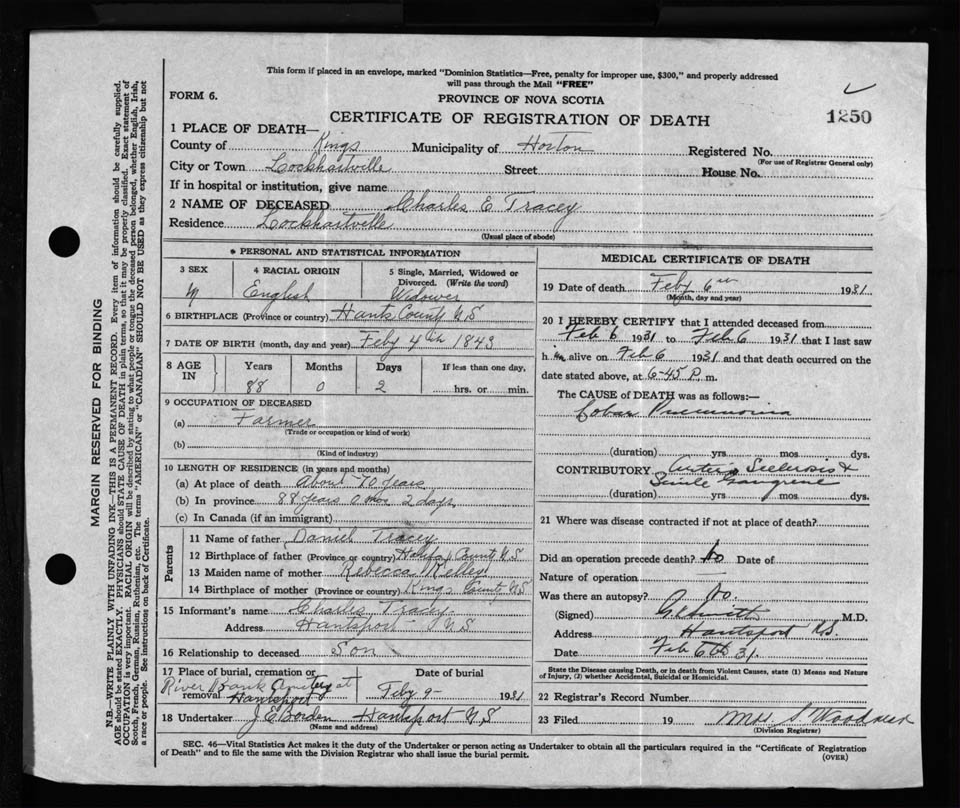 This form if placed in an envelope, marked "Dominion Statistics—Free, penalty for improper use, $300," and properly addressed
will pass through the Mail "FREE"
FORM 6.
PROVINCE OF NOVA SCOTIA
CERTIFICATE OF REGISTRATION OF DEATH
1250
1 PLACE OF DEATH—
County of Kings Municipality of Horton Registered No.
(For use of Registrar General only)
City or Town Lockhartville Street House No.
If in hospital or institution, give name
2 NAME OF DECEASED Charles E Tracey
Residence Lockhartville
(Usual place of abode)
* PERSONAL AND STATISTICAL INFORMATION
3 SEX
M
4 RACIAL ORIGIN
English
5 Single, Married, Widowed or
Divorced. (Write the word)
Widower
6 BIRTHPLACE (Province or country) Hants County N S
7 DATE OF BIRTH (month, day and year) Feby 4th 1843
8 AGE IN
Years Months Days If less than one day,
88 0 2 hrs. or min.
9 OCCUPATION OF DECEASED
(a) Farmer
(Trade or occupation or kind of work)
(b)
(Kind of industry)
10 LENGTH OF RESIDENCE (in years and months)
(a) At place of death About 70 years
(b) In province 88 years 0 mon 2 days
(c) In Canada (if an immigrant)
Parents
11 Name of father Daniel Tracey
12 Birthplace of father (Province or country) Halifax County N S
13 Maiden name of mother Rebecca Kelley
14 Birthplace of mother (Province or country) Kings County N S
15 Informant's name Charles Tracy
Address Hantsport N S
16 Relationship to deceased Son
17 Place of burial, cremation or removal
River Bank Cemetery at Hantsport
Date of burial
Feby 9 1931
18 Undertaker J E Borden Hantsport N S
(Name and address)
MEDICAL CERTIFICATE OF DEATH
19 Date of death Feby 6th 1931
(Month, day and year)
20 I HEREBY CERTIFY that I attended deceased from
Feb 6 1931 to Feb 6 1931 that I last saw
him alive on Feb 6 1931 and that death occurred on the
date stated above, at 6-45 P. m.
The CAUSE of DEATH was as follows:—
Lobar Pneumonia
(duration) yrs mos dys.
CONTRIBUTORY Arterio Sclerosis &
Senile Gangrene
(duration) yrs mos dys.
21 Where was disease contracted if not at place of death?
Did an operation precede death? No Date of
Nature of operation —
Was there an autopsy? No.
(Signed) M.D.
Address Hantsport N.S.
Date Feb 6th 31.
State the Disease causing Death, or in death from Violent Causes, state (1) Means and Nature
of Injury, (2) whether Accidental, Suicidal or Homicidal.
22 Registrar's Record Number
23 Filed 19 Mrs S.
(Division Registrar)
SEC. 46—Vital Statistics Act makes it the duty of the Undertaker or person acting as Undertaker to obtain all the particulars required in the "Certificate of Registration
of Death" and to file the same with the Division Registrar who shall issue the burial permit.
(OVER)
MARGIN RESERVED FOR BINDING
N.B.—WRITE PLAINLY WITH UNFADING INK—THIS IS A PERMANENT RECORD. Every item of information should be carefully supplied.
AGE should be stated EXACTLY. PHYSICIANS should STATE CAUSE OF DEATH in plain terms, so that it may be properly classified. Exact statement of
OCCUPATION is very important. RACIAL ORIGIN will be described by stating to what people or tongue the deceased person belonged, whether English, Irish,
Scotch, French, German, Russian, Ruthenian, etc. The terms "AMERICAN" or "CANADIAN" SHOULD NOT BE USED as they express citizenship but not
a race or people. See instructions on back of Certificate.